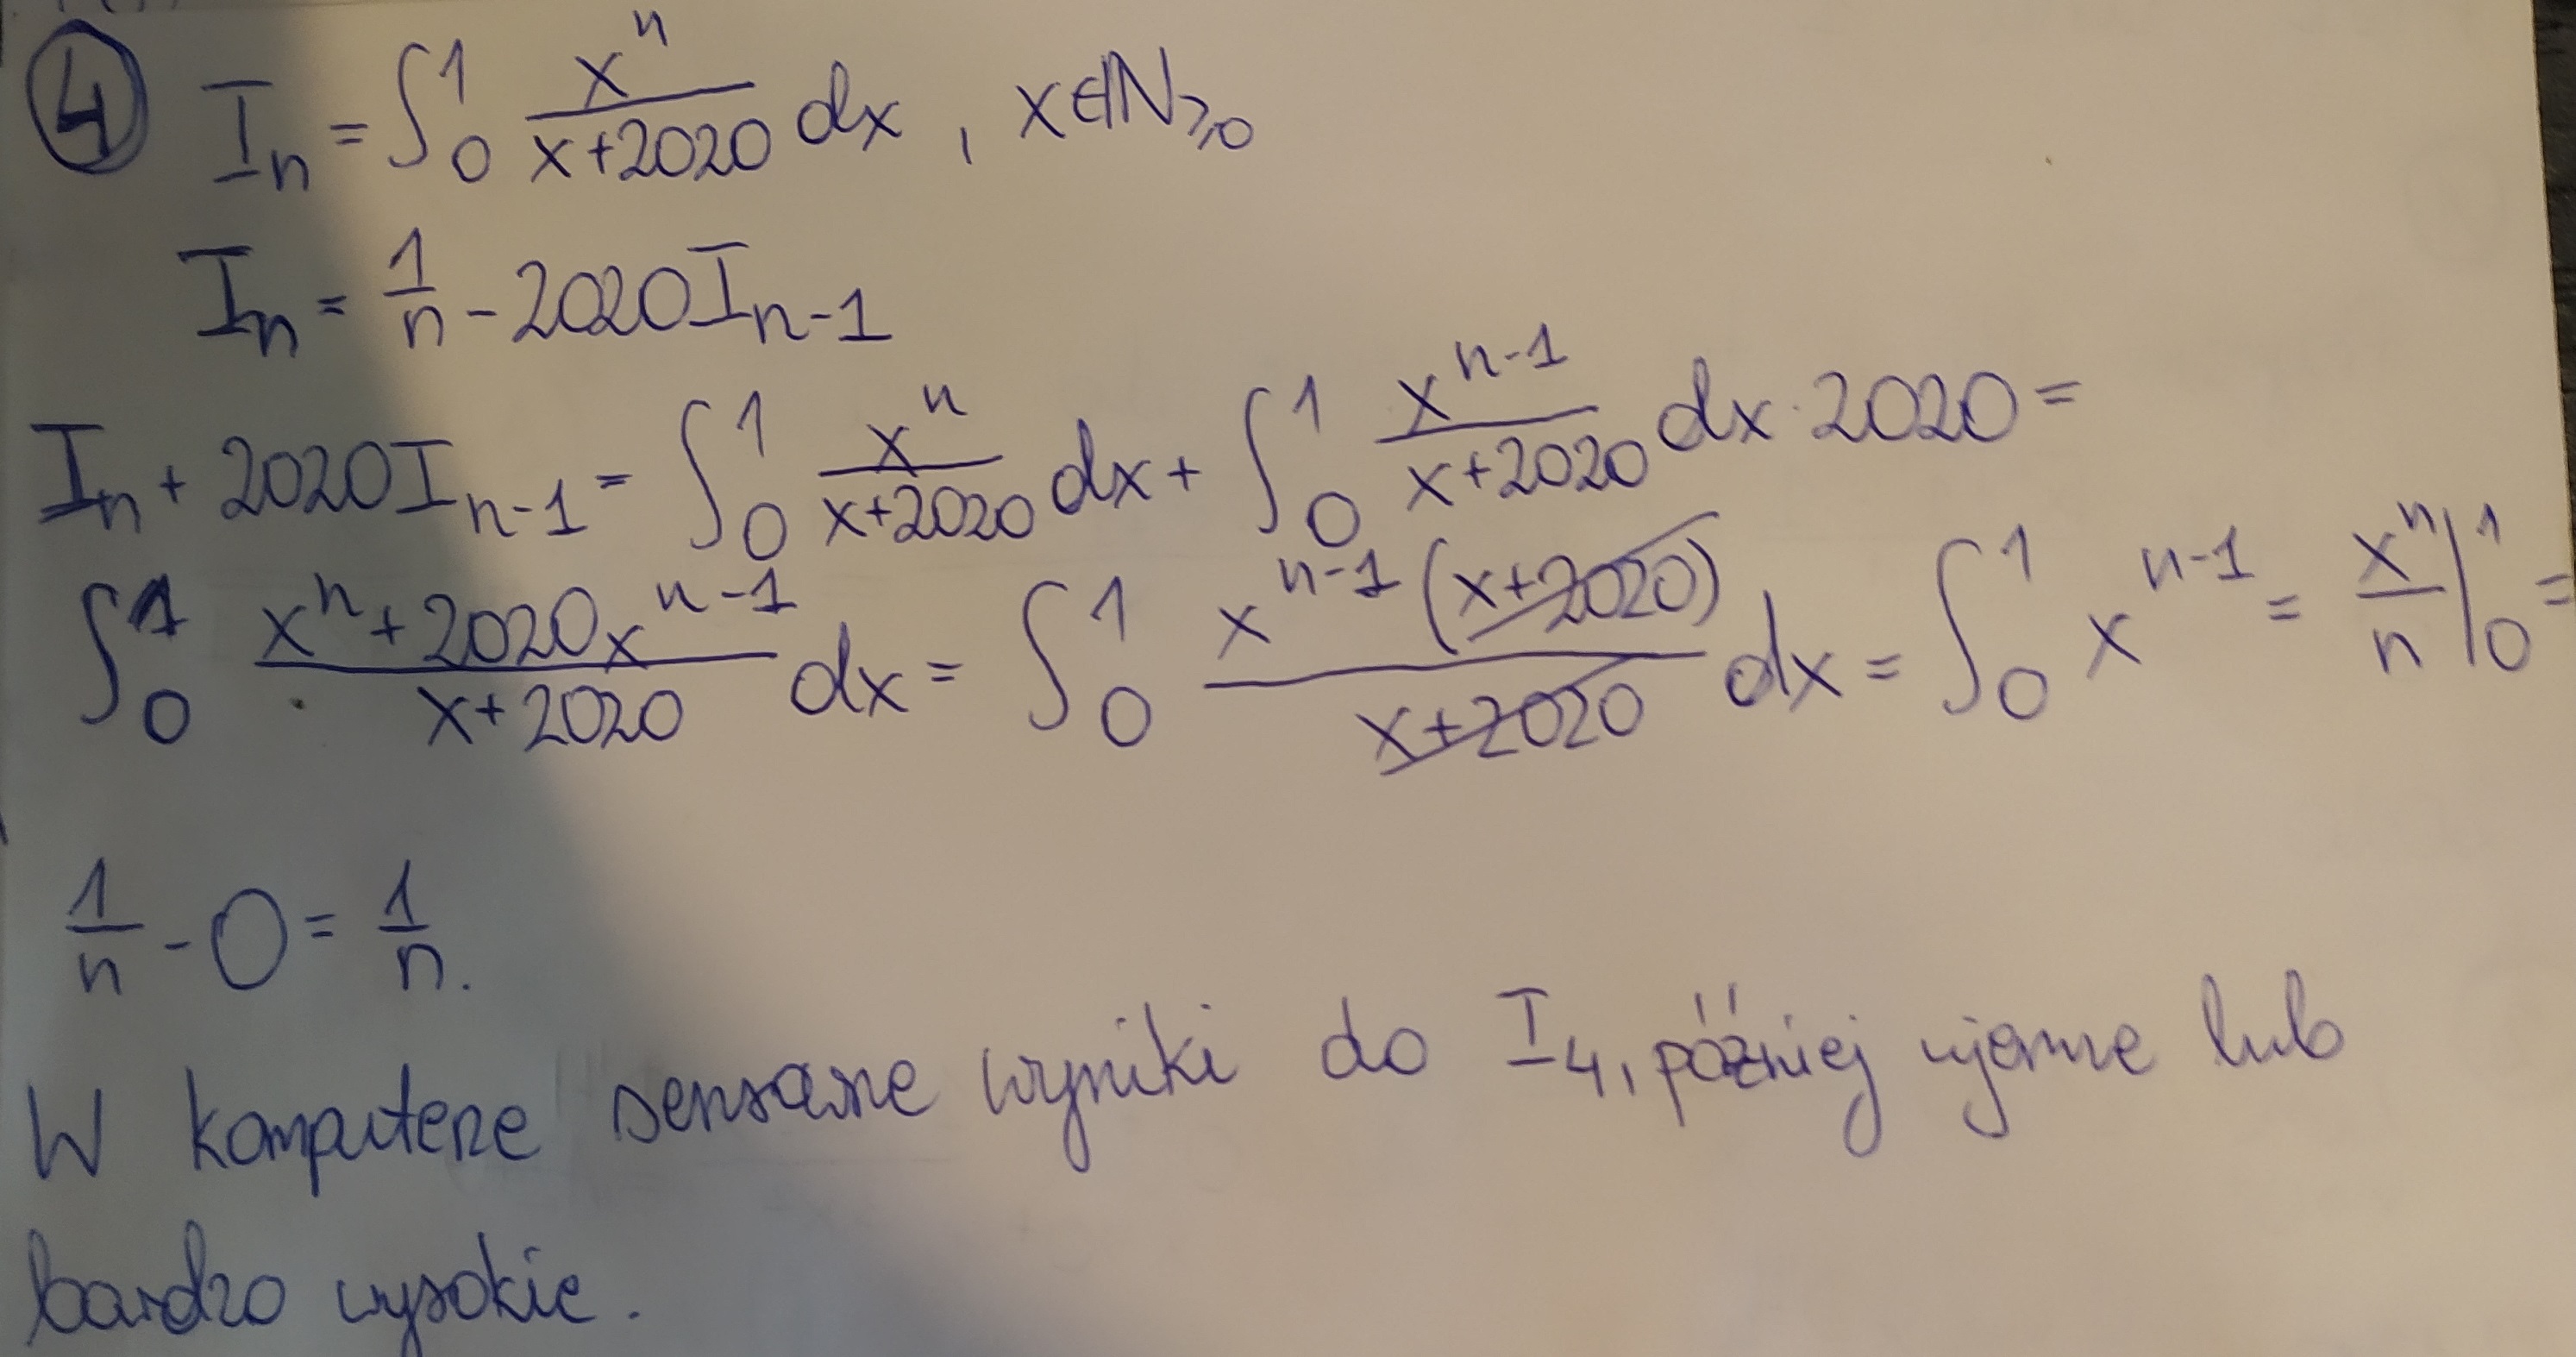 ④ Iₙ = ∫₀¹ xⁿ/(x+2020) dx , x∈ℕ≥0
Iₙ = 1/n - 2020Iₙ₋₁
Iₙ + 2020Iₙ₋₁ = ∫₀¹ xⁿ/(x+2020) dx + ∫₀¹ xⁿ⁻¹/(x+2020) dx · 2020 =
∫₀¹ (xⁿ+2020xⁿ⁻¹)/(x+2020) dx = ∫₀¹ xⁿ⁻¹(x+2020)/(x+2020) dx = ∫₀¹ xⁿ⁻¹ = xⁿ/n |₀¹ =
1/n - 0 = 1/n.
W komputerze sensowne wyniki do I₄, później ujemne lub
bardzo wysokie.